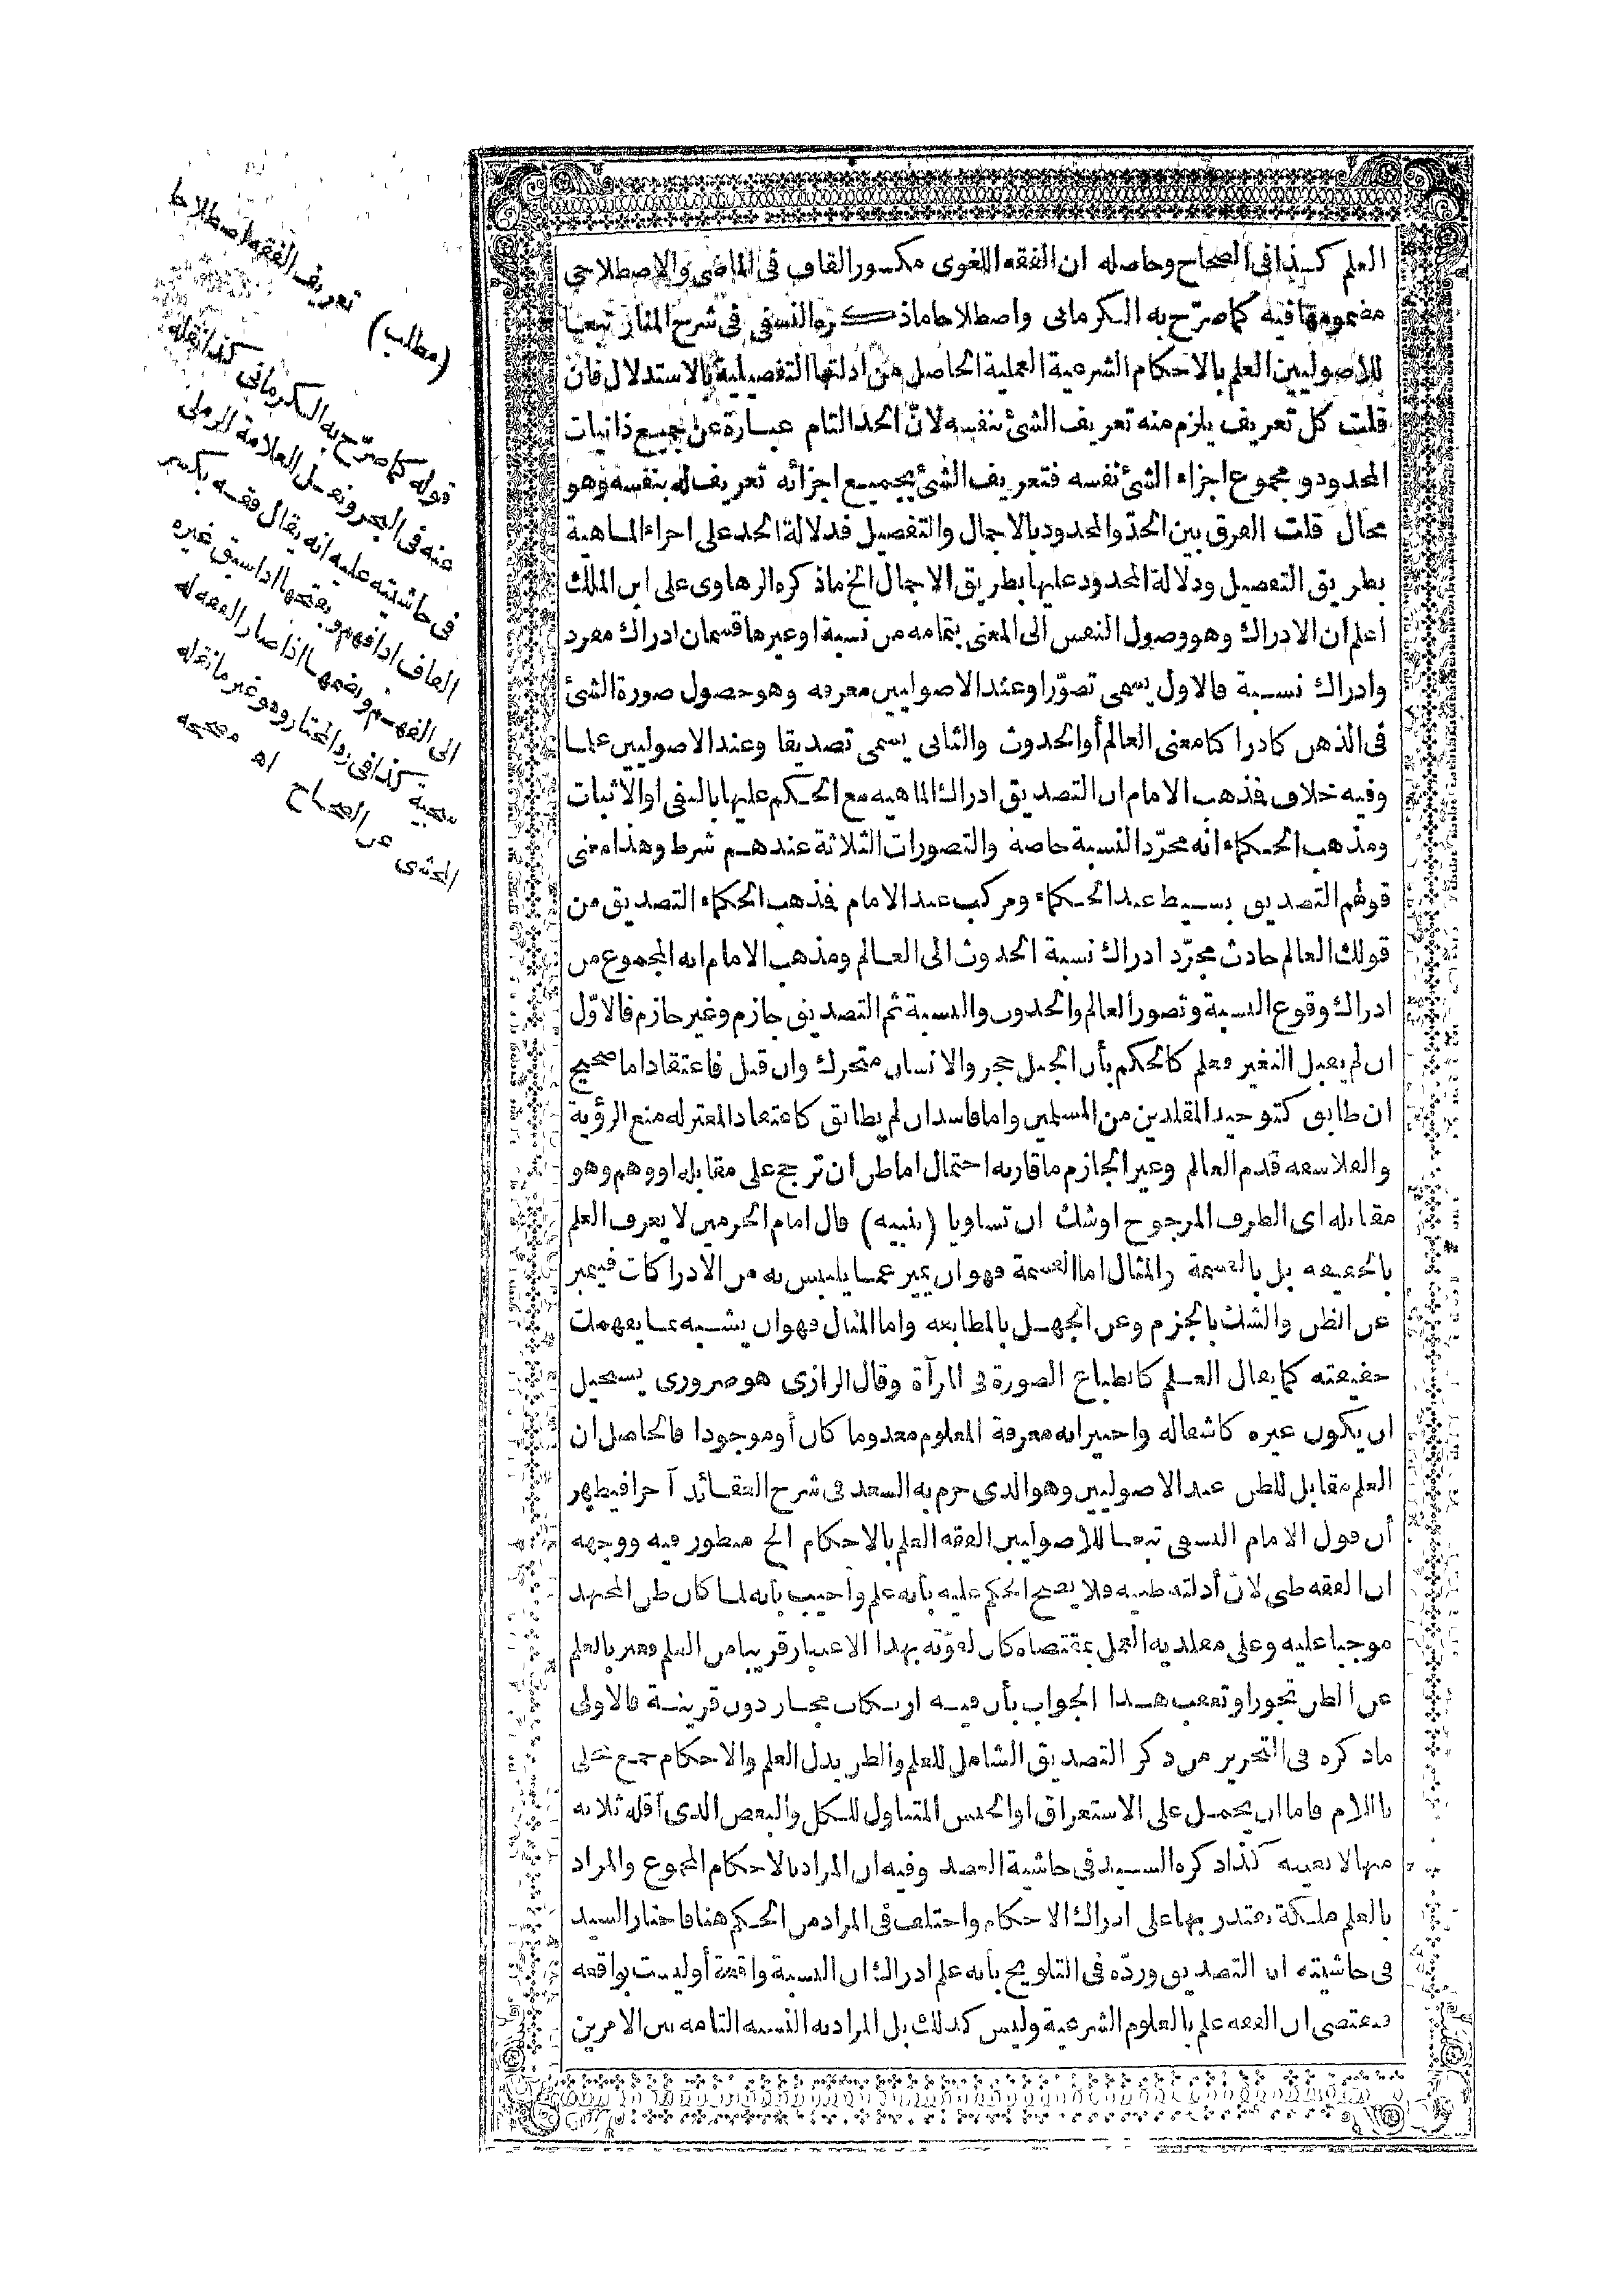 العلم كذا فى الصحاح وحاصله ان الفقه اللغوى مكسور القاف فى الماضى والاصطلاحى
مضمومها فيه كما صرّح به الكرمانى واصطلاحا ماذكره النسفى فى شرح المنار تبعا
للاصوليين العلم بالاحكام الشرعية العملية الحاصل من ادلتها التفصيلية بالاستدلال فان
قلت كل تعريف يلزم منه تعريف الشئ بنفسه لانّ الحد التام عبارة عن جميع ذاتيات
المحدود ومجموع اجزاء الشئ نفسه فتعريف الشئ بجميع اجزائه تعريف له بنفسه وهو
محال قلت الفرق بين الحدّ والمحدود بالاجمال والتفصيل فدلالة الحد على اجزاء الماهية
بطريق التفصيل ودلالة المحدود عليها بطريق الاجمال الخ ماذكره الرهاوى على ابن الملك
اعلم أن الادراك وهو وصول النفس الى المعنى بتمامه من نسبة اوغيرها قسمان ادراك مفرد
وادراك نسبة فالاول يسمى تصوّرا وعند الاصوليين معرفه وهو حصول صورة الشئ
فى الذهن كادراكنا معنى العالم أوالحدوث والثانى يسمى تصديقا وعند الاصوليين علما
وفيه خلاف فذهب الامام ان التصديق ادراك الماهيه مع الحكم عليها بالنفى اوالاثبات
ومذهب الحكماء انه مجرّد النسبة خاصة والتصورات الثلاثة عندهم شرط وهذا معنى
قولهم التصديق بسيط عند الحكماء ومركب عند الامام فذهب الحكماء التصديق من
قولك العالم حادث مجرّد ادراك نسبة الحدوث الى العالم ومذهب الامام انه المجموع من
ادراك وقوع النسبة وتصور العالم والحدوث والنسبة ثم التصديق جازم وغير جازم فالاوّل
ان لم يقبل التغير فعلم كالحكم بأن الجبل حجر والانسان متحرك وان قبل فاعتقاد اما صحيح
ان طابق كتوحيد المقلدين من المسلمين واما فاسد ان لم يطابق كاعتقاد المعتزله منع الرؤية
والفلاسفه قدم العالم وغير الجازم ماقارنه احتمال اماظن ان ترجح على مقابله اووهم وهو
مقابله اى الطرف المرجوح اوشك ان تساويا (تنبيه) قال امام الحرمين لا يعرف العلم
بالحقيقه بل بالقسمة والمثال اما القسمة فهو ان يميز عما يلتبس به من الادراكات فيميز
عن الظن والشك بالجزم وعن الجهل بالمطابقه واما المثال فهو ان يشبه بما يفهمك
حقيقته كما يقال العلم كانطباع الصورة فى المرآة وقال الرازى هو ضرورى يستحيل
ان يكون غيره كاشفاله واختير انه معرفة المعلوم معدوما كان أوموجودا فالحاصل ان
العلم مقابل للظن عند الاصوليين وهو الذى جزم به السعد فى شرح العقائد آخرا فيظهر
أن قول الامام النسفى تبعا للاصوليين الفقه العلم بالاحكام الخ منظور فيه ووجهه
ان الفقه ظنى لانّ أدلته ظنيه فلا يصح الحكم عليه بأنه علم وأجيب بأنه لما كان ظن المجتهد
موجبا عليه وعلى مقلديه العمل بمقتضاه كان لقوّته بهذا الاعتبار قريبا من العلم فعبر بالعلم
عن الظن تجوزا وتعقب هذا الجواب بأن فيه ارتكاب مجاز دون قرينة فالاولى
ماذكره فى التحرير من ذكر التصديق الشامل للعلم والظن بدل العلم والاحكام جمع محلى
باللام فاما ان يحمل على الاستغراق اوالجنس المتناول للكل والبعض الذى أقله ثلاثه
منها لا بعينه كذا ذكره السيد فى حاشية العضد وفيه ان المراد بالاحكام المجموع والمراد
بالعلم ملكة يقتدر بها على ادراك الاحكام واختلف فى المراد من الحكم هنا فاختار السيد
فى حاشيته انه التصديق وردّه فى التلويح بأنه علم ادراك ان النسبة واقعة أوليست بواقعه
فيقتضى ان الفقه علم بالعلوم الشرعية وليس كذلك بل المراد به النسبه التامه بين الامرين
(مطلب) تعريف الفقه اصطلاحا
قوله كما صرّح به الكرمانى كذا نقله
عنه فى البحر ونقل العلامة الرملى
فى حاشيته عليه انه يقال فقه بكسر
القاف اذا فهم وبفتحها اذا سبق غيره
الى الفهم وبضمها اذا صار الفقه له
سجية كذا فى رد المحتار وهو غير ما نقله
المحشى عن الصحاح اه مصححه